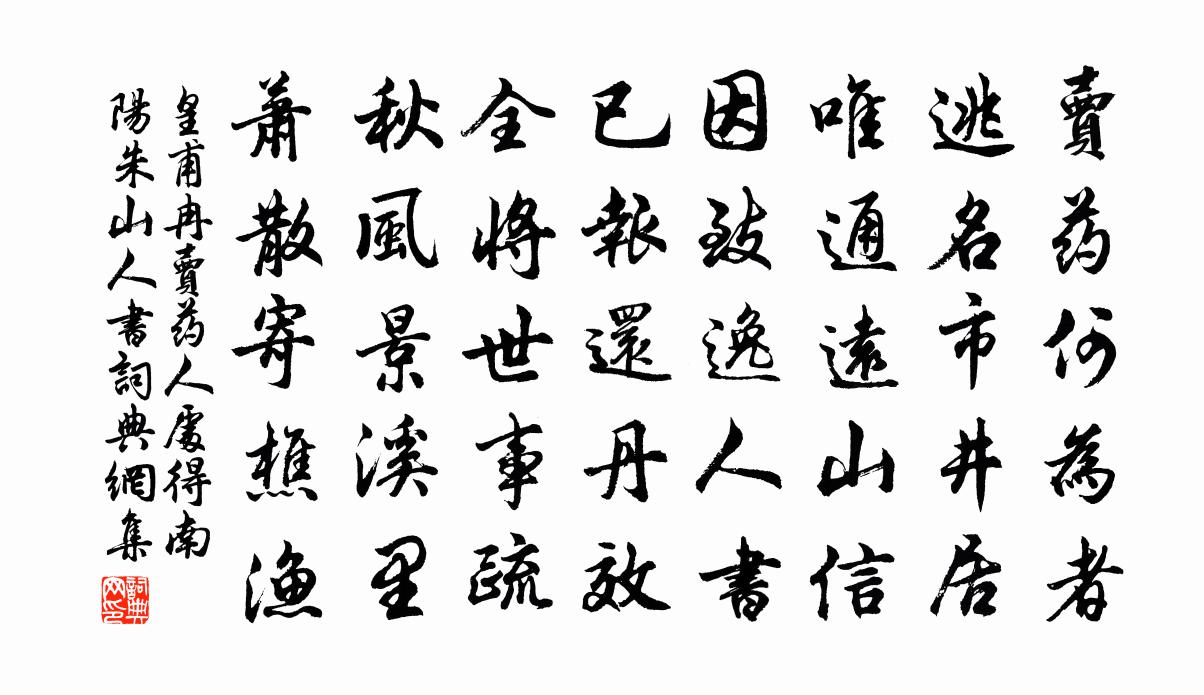 賣药何為者
逃名市井居
唯通遠山信
因致逸人書
已報還丹效
全將世事疏
秋風景溪里
蕭散寄樵漁
皇甫冉賣药人處得南
陽朱山人書詞典網集
詞典網印